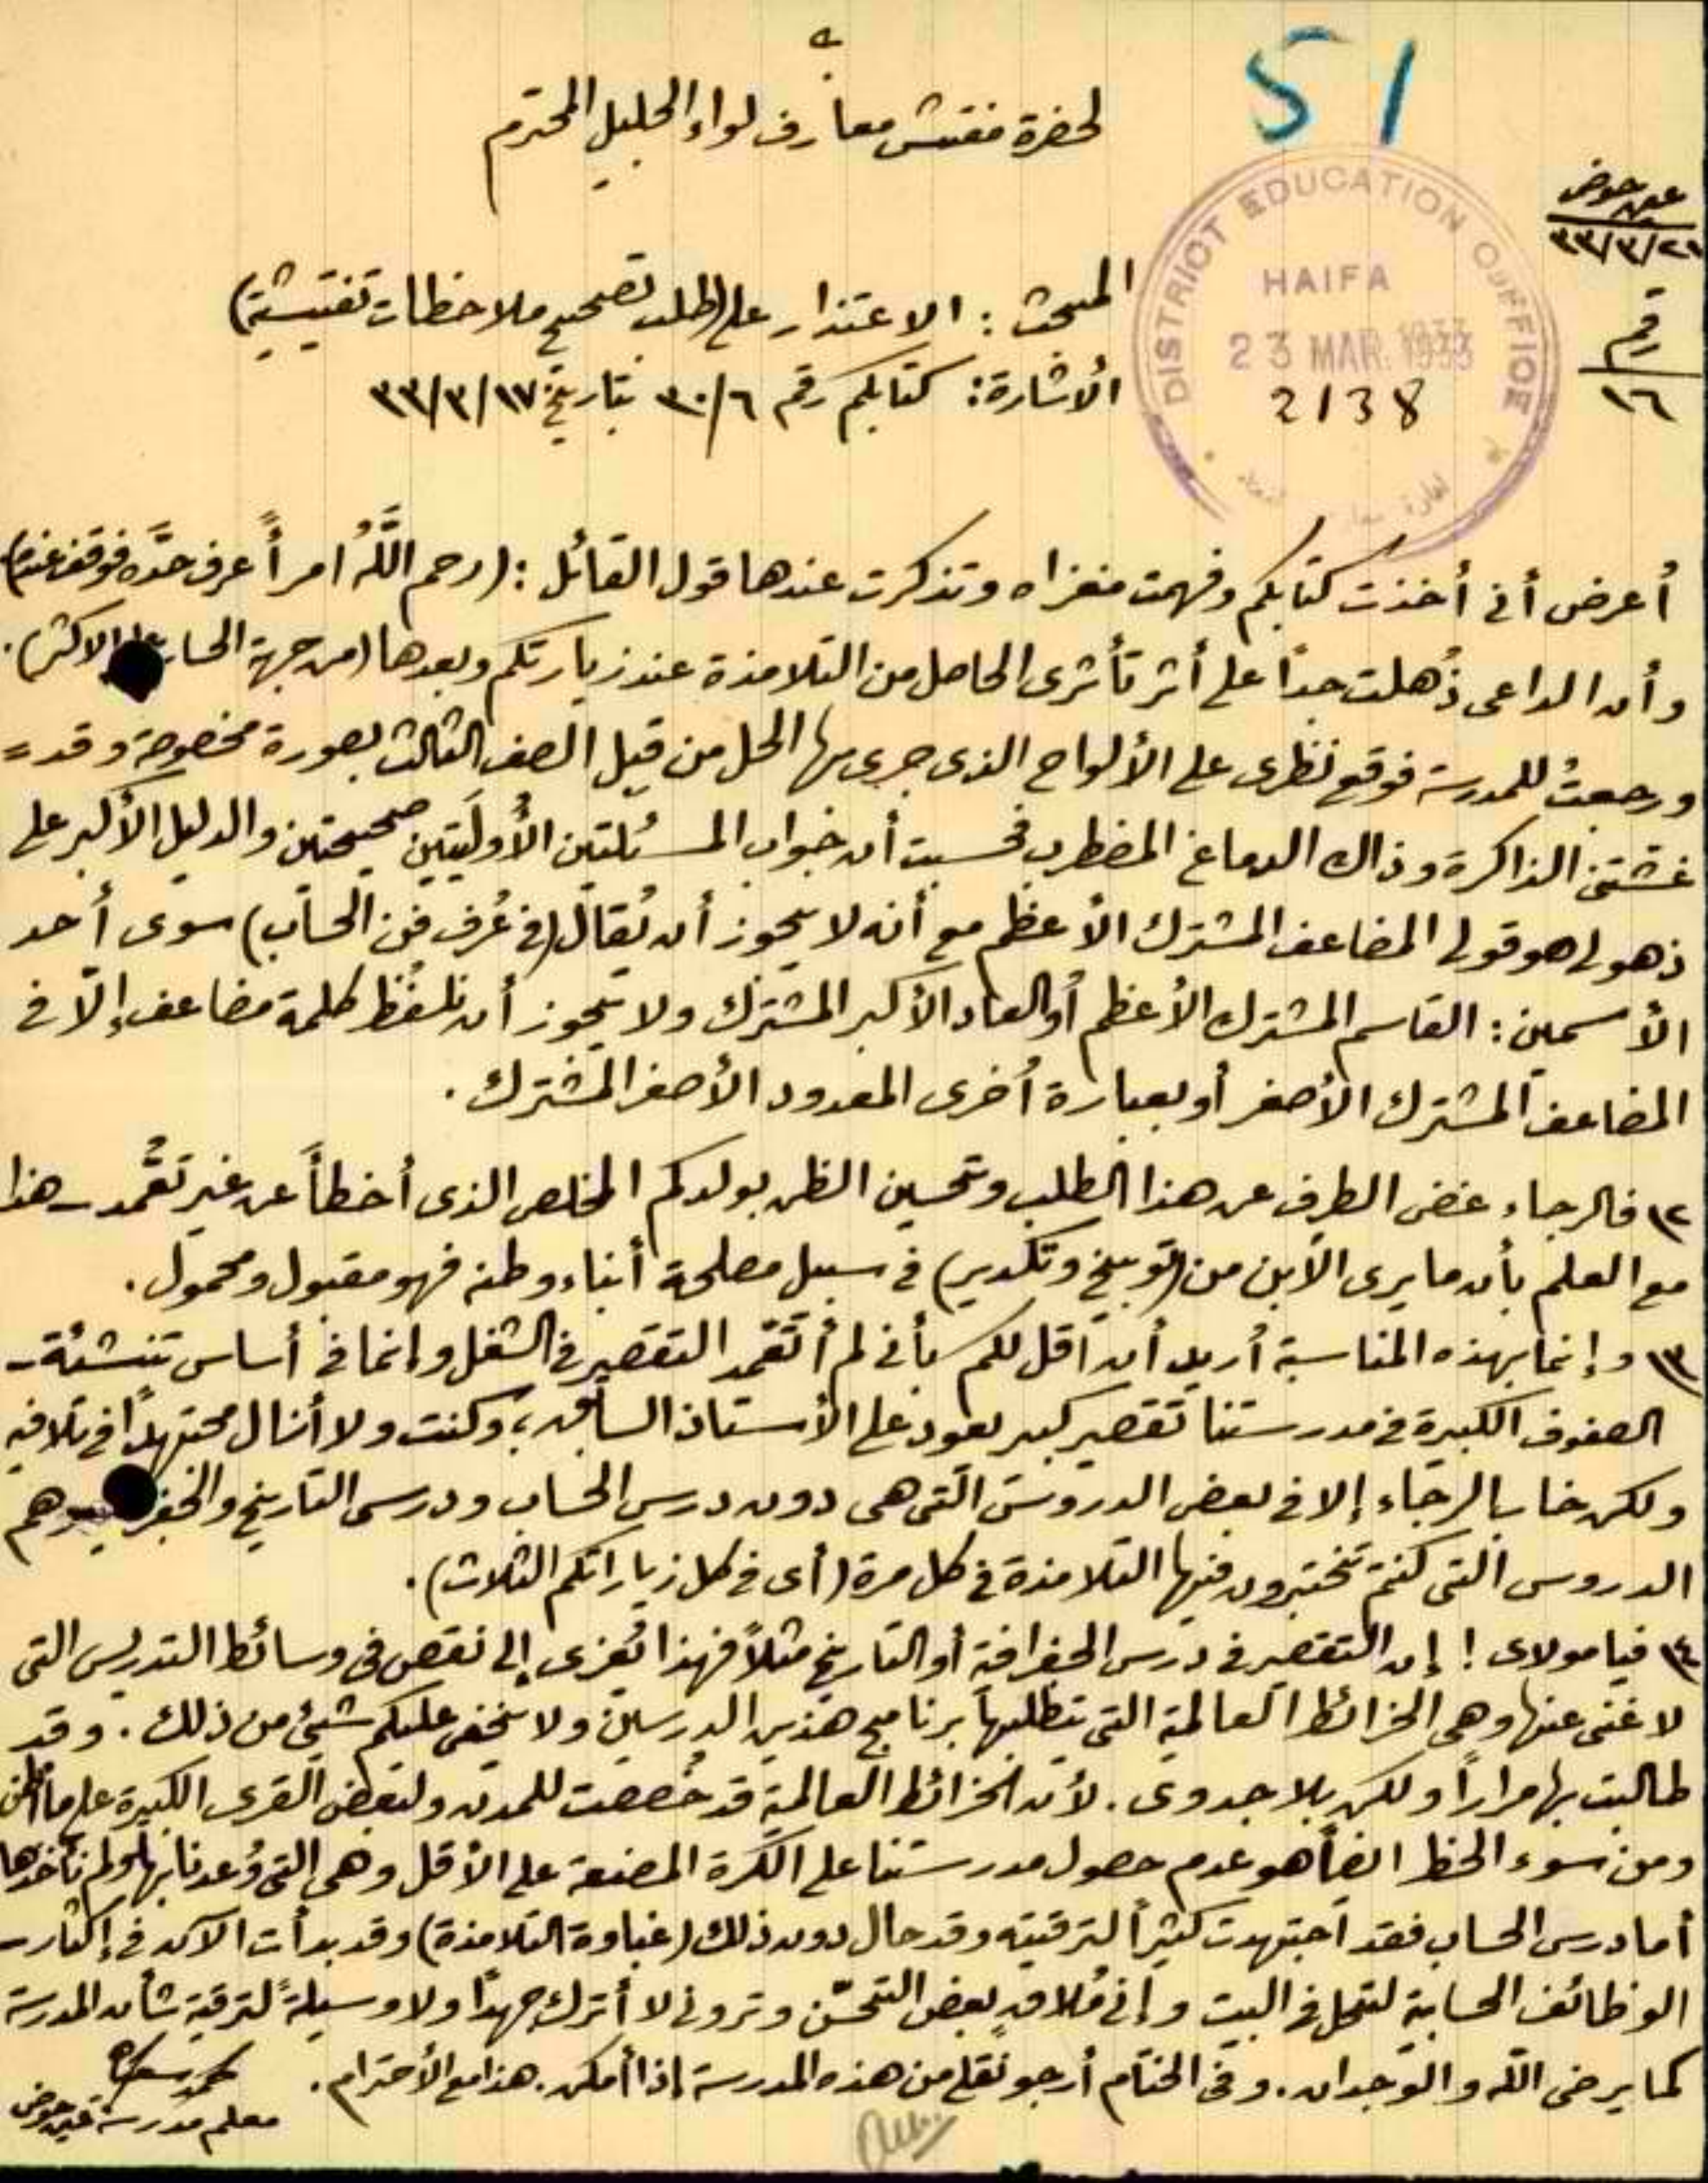 51
لحضرة مفتش معارف لواء الجليل المحترم
عين حوض
٢١/٣/٣٣
رقم
١٦
DISTRICT EDUCATION OFFICE
HAIFA
23 MAR. 1933
2138
المبحث: الاعتذار على (طلب تصحيح ملاحظات تفتيشية)
الأشارة: كتابكم رقم ٣٠/٦ بتاريخ ٣٣/٣/١٧
أعرض أني أخذت كتابكم وفهمت مغزاه وتذكرت عندها قول القائل: (رحم اللَّهُ امرأً عرف حدَّه فوقف عنده)
وأن الداعي ذُهلت جداً على أثر تأثري الحاصل من التلامذة عند زيارتكم وبعدها (من جهة الحساب على الاكثر).
ورجعتُ للمدرسة فوقع نظري على الألواح الذي جرى بها الحل من قبل الصف الثالث بصورة مخصوصة وقد =
غشتني الذاكرة وذاك الدماغ المضطرب فحسبت أن جواب المسئلتين الأُولَيَتين صحيحتين والدليل الأكبر على
ذهولي هو قولي المضاعف المشترك الأعظم مع أنه لا يجوز أن يُقال (في عُرف فن الحساب) سوى أحد
الأسمين: القاسم المشترك الأعظم أو العاد الأكبر المشترك ولا يجوز أن نلفظ كلمة مضاعف إلّا في
المضاعف المشترك الأصغر أو بعبارة أُخرى المعدود الأصغر المشترك.
٢) فالرجاء غض الطرف عن هذا الطلب وتحسين الظن بولدكم المخلص الذي أخطأ عن غير تعمُّد - هذا
مع العلم بأن ما يرى الأبن من (توبيخ وتكدير) في سبيل مصلحة أبناء وطنه فهو مقبول ومحمول.
٣) وإنما بهذه المناسبة أريد أن اقل لكم بأني لم أتقمد التقصير في الشغل وإنما في أساس تنشئة -
الصفوف الكبيرة في مدرستنا تقصير كبير يعود على الأستاذ السابق، وكنت ولا أزال مجتهداً في تلافيه
ولكن خاب الرجاء إلا في بعض الدروس التي هي دون درس الحساب ودرسي التاريخ والجغرافية وهم
الدروس التي كنتم تختبرون فيها التلامذة في كل مرة (أي في كل زياراتكم الثلاث).
٤) فيا مولاي! إن التقصير في درس الجغرافية أو التاريخ مثلاً فهذا يُعزى إلى نقص في وسائط التدريس التي
لا غنى عنها وهي الخرائط العالمية التي يتطلبها برنامج هذين الدرسين ولا يخفى عليكم شيئ من ذلك. وقد
طالبت بها مراراً ولكن بلا جدوى. لأن الخرائط العالمية قد خُصصت للمدن ولبعض القرى الكبيرة على ما أظن
ومن سوء الحظ ايضاً هو عدم حصول مدرستنا على الكرة المصنعة على الأقل وهي التي وُعدنا بها ولم نأخذها
أما درس الحساب فقد اجتهدت كثيراً لترقيته وقد حال دون ذلك (غباوة التلامذة) وقد بدأت الآن في إكثار -
الوظائف الحسابية لتحل في البيت وإني مُلاقٍ بعض التحسّن وتروني لا أترك جهداً ولا وسيلةً لترقية شأن المدرسة
كما يرضى الله والوجدان. وفي الختام أرجو نقلي من هذه المدرسة إذا أمكن. هذا مع الأحترام.
محمد
معلم مدرسة عين حوض